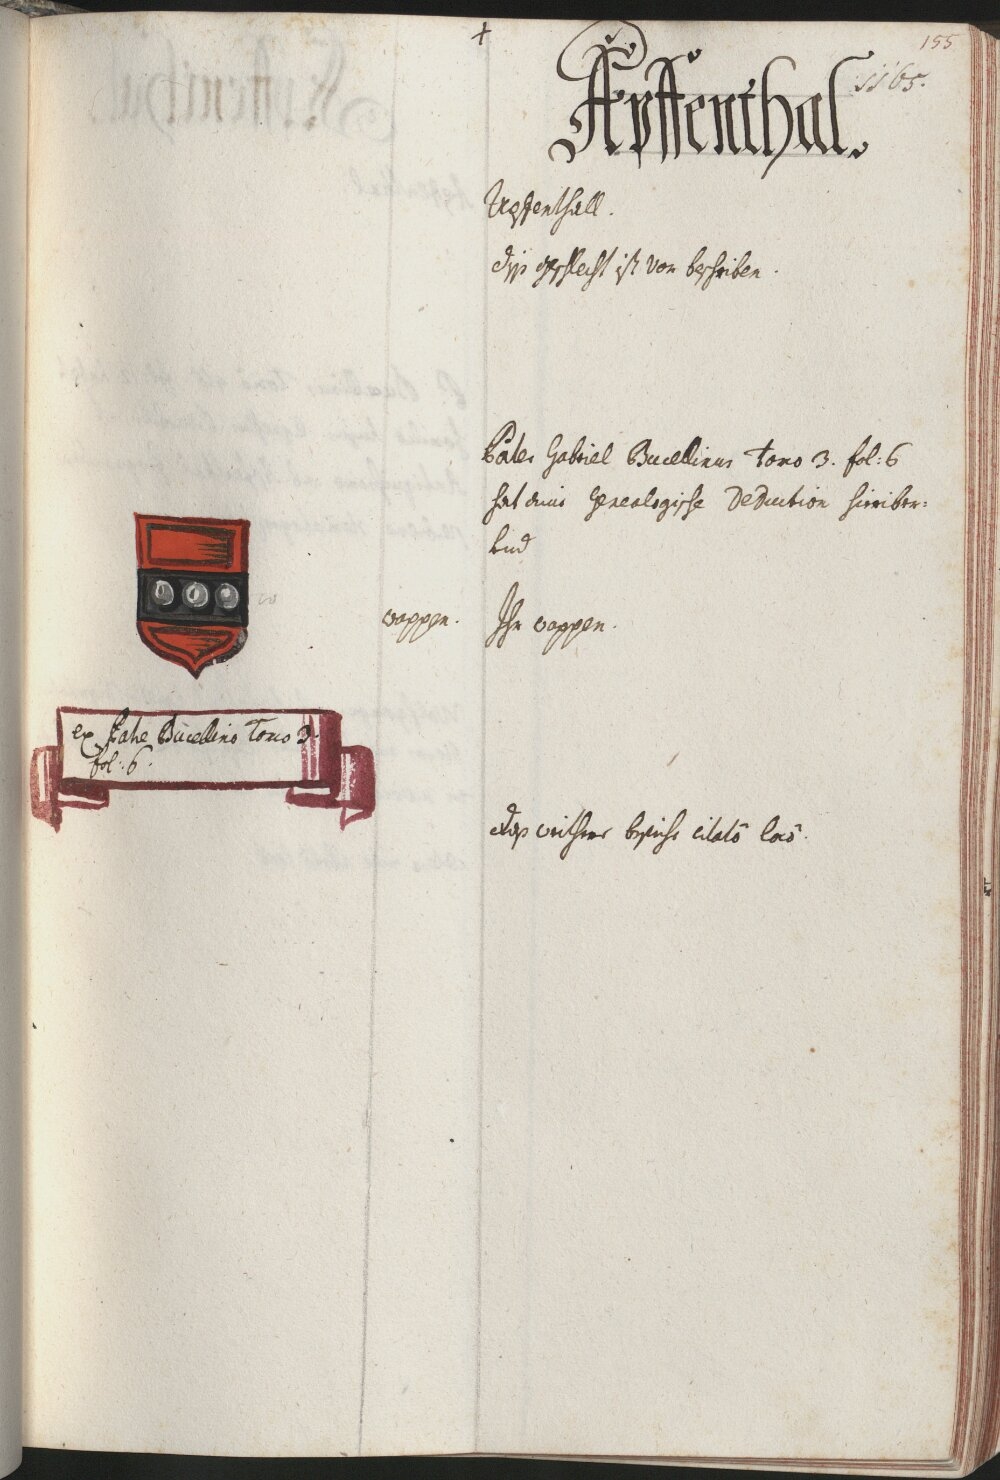 155
1165.
Apffenthal.
Apffenthall.
diß geschlecht ist vor beschriben.
Pater Gabriel Bucellinus tomo 3. fol: 6
hat eine genealogische Deduction hierüber:
wappen. Ihr wappen.
ex Patre Bucellino Tomo 3.
fol: 6.
des weithern besiehe citato loco.